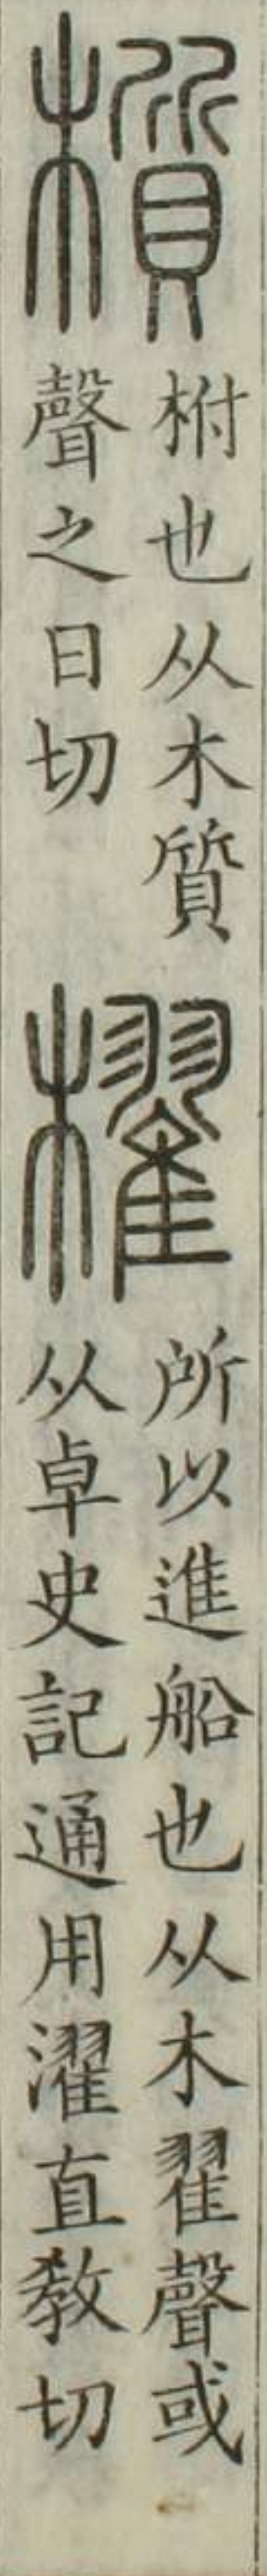 櫍
柎也从木質
聲之日切
櫂
所以進船也从木翟聲或
从卓史記通用濯直敎切